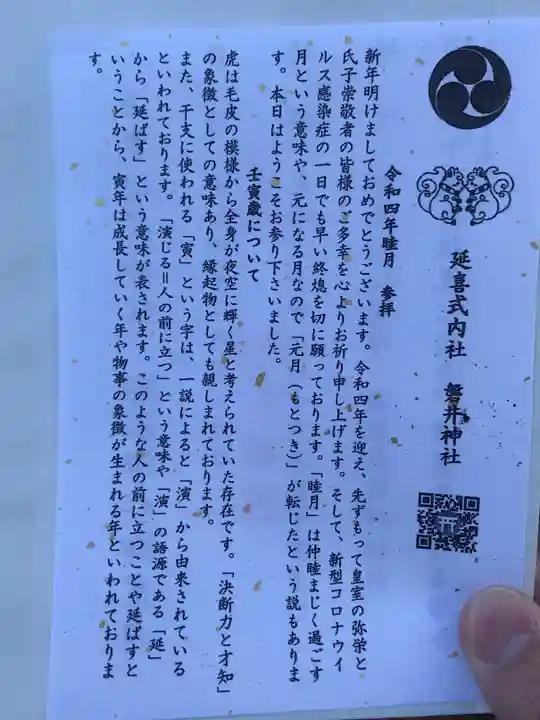 延喜式内社　磐井神社
令和四年睦月　参拝
新年明けましておめでとうございます。令和四年を迎え、先ずもって皇室の弥栄と
氏子崇敬者の皆様のご多幸を心よりお祈り申し上げます。そして、新型コロナウイ
ルス感染症の一日でも早い終熄を切に願っております。「睦月」は仲睦まじく過ごす
月という意味や、元になる月なので「元月（もとつき）」が転じたという説もありま
す。本日はようこそお参り下さいました。
壬寅歳について
虎は毛皮の模様から全身が夜空に輝く星と考えられていた存在です。「決断力と才知」
の象徴としての意味あり、縁起物としても親しまれております。
また、干支に使われる「寅」という字は、一説によると「演」から由来されている
といわれております。「演じる＝人の前に立つ」という意味や「演」の語源である「延」
から「延ばす」という意味が表されます。このような人の前に立つことや延ばすと
いうことから、寅年は成長していく年や物事の象徴が生まれる年といわれておりま
す。